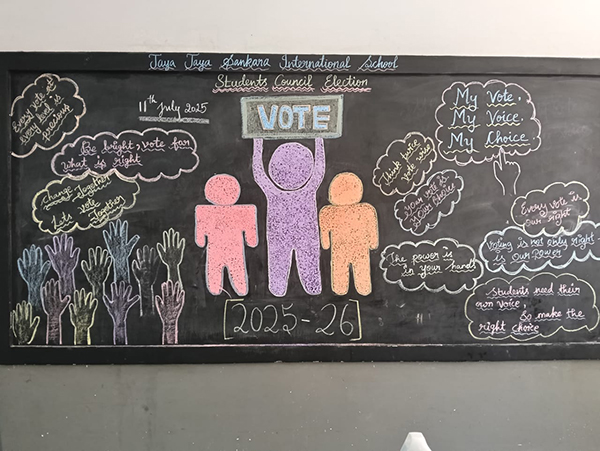 Jaya Jaya Sankara International School
Students Council Election
11th July 2025
VOTE
Every vote at
every level is
precious
Be bright, vote for
what is right
Change Together
Lets vote
Together
Think twice
vote wise
Your vote is
your choice
My Vote,
My Voice,
My Choice
The power is
in your hand!
Every vote is
our right
Voting is not only right -
is our Power
Students need their
own voice,
So make the
right choice
[2025-26]